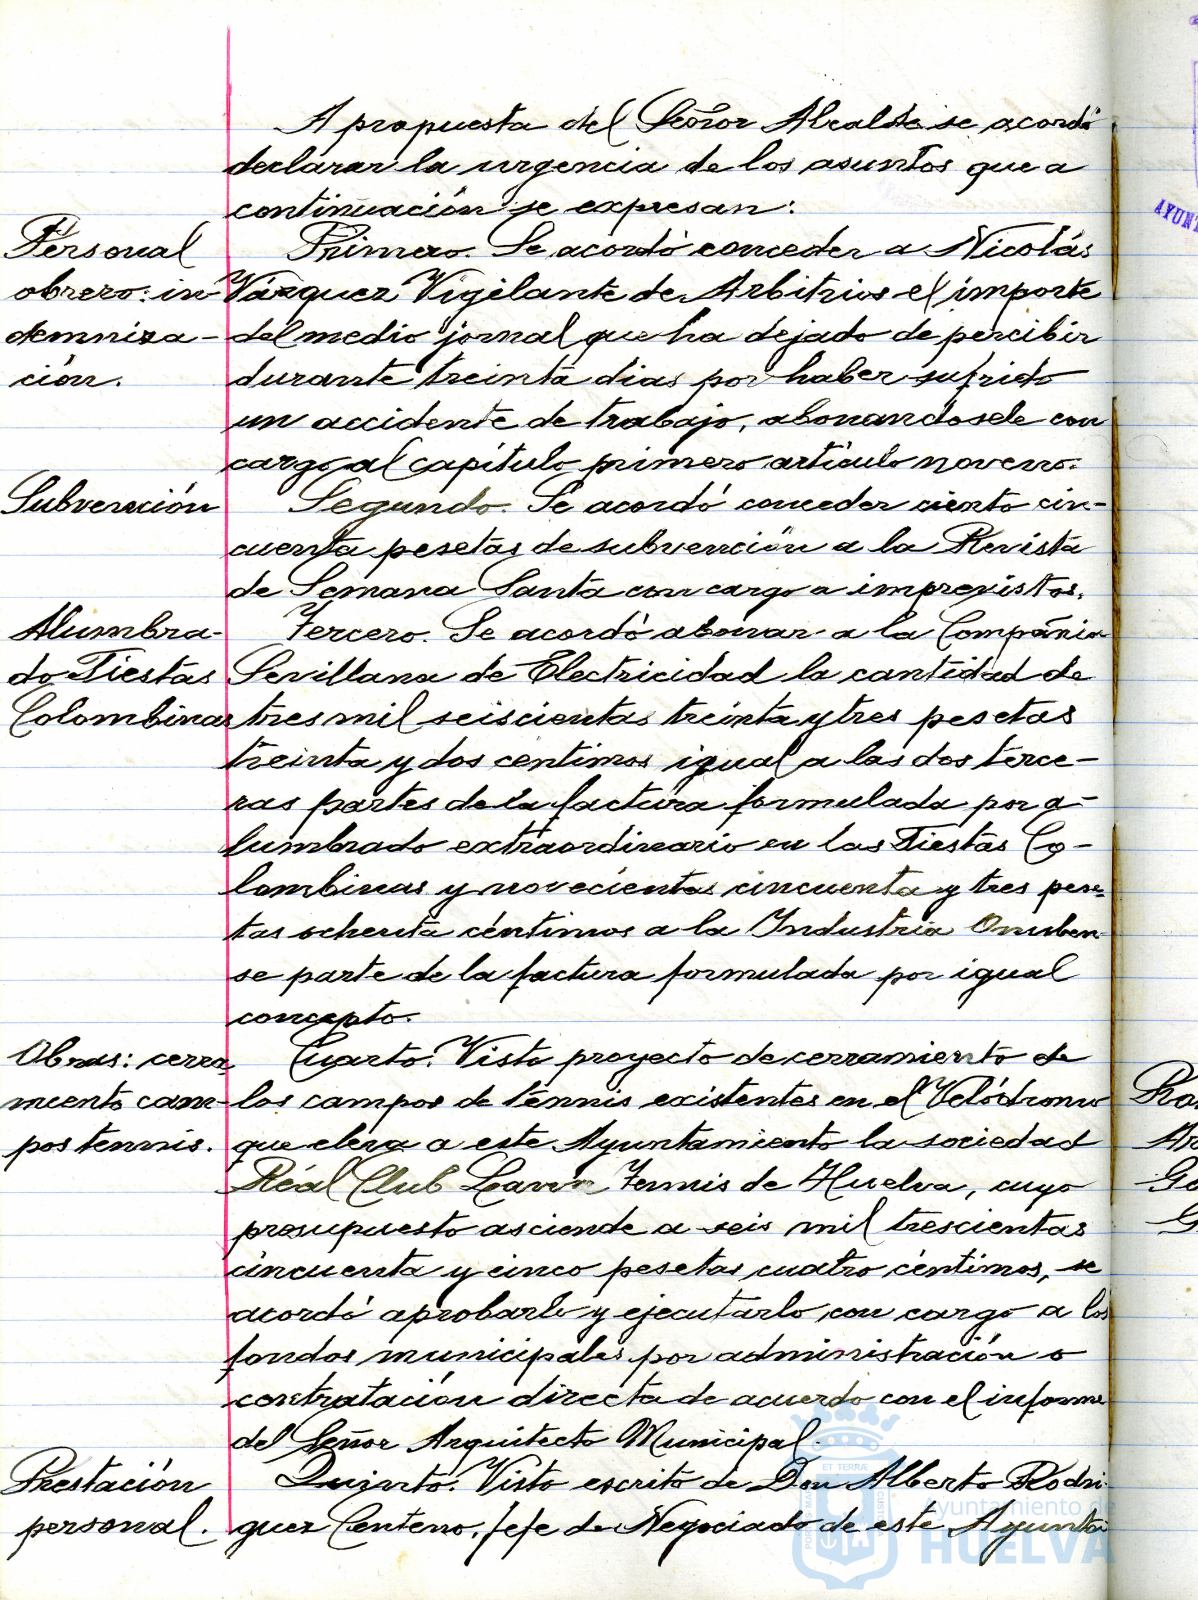 A propuesta del Señor Alcalde se acordó
declarar la urgencia de los asuntos que a
continuación se expresan:
Personal
obrero: in
demniza-
ción.
Primero. Se acordó conceder a Nicolás
Vázquez Vigilante de Arbitrios el importe
del medio jornal que ha dejado de percibir
durante treinta dias por haber sufrido
un accidente de trabajo, abonandosele con
cargo al capítulo primero artículo noveno.
Subvención
Segundo. Se acordó conceder ciento cin-
cuenta pesetas de subvención a la Revista
de Semana Santa con cargo a imprevistos.
Alumbra-
do Fiestas
Colombinas
Tercero. Se acordó abonar a la Compañia
Sevillana de Electricidad la cantidad de
tres mil seiscientas treinta y tres pesetas
treinta y dos centimos igual a las dos terce-
ras partes de la factura formulada por a-
lumbrado extraordinario en las Fiestas Co-
lombinas y novecientas cincuenta y tres pese-
tas ochenta céntimos a la Industria Onuben-
se parte de la factura formulada por igual
concepto.
Obras: cerra
miento cam-
pos tennis.
Cuarto. Visto proyecto de cerramiento de
los campos de tennis existentes en el Velódromo
que eleva a este Ayuntamiento la sociedad
Real Club Lawn Tennis de Huelva, cuyo
presupuesto asciende a seis mil trescientas
cincuenta y cinco pesetas cuatro céntimos, se
acordó aprobarlo y ejecutarlo con cargo a los
fondos municipales por administración o
contratación directa de acuerdo con el informe
del Señor Arquitecto Municipal.
Prestación
personal.
Quinto. Visto escrito de Don Alberto Rodri-
guez Centeno, Jefe de Negociado de este Ayunta
Ayuntamiento de
HUELVA